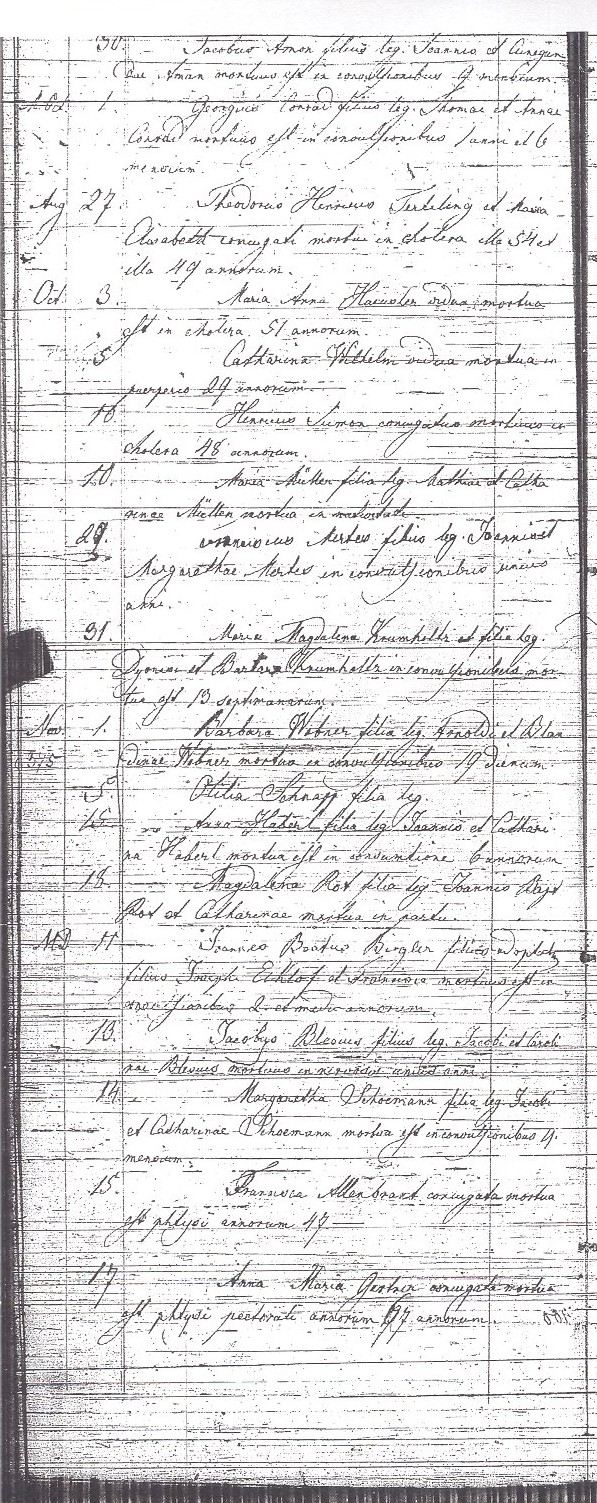 30. Jacobus Amon filius leg. Joannis et Cunegun
dae Aman mortuus est in convulsionibus 9 mensium.
1. Georgius Conrad filius leg. Thomae et Annae
Conrad mortuus est in convulsionibus 1 anni et 6
mensium.
Aug 27. Theodorus Henricus Terteling et Maria
Elisabeth conjugati mortui in cholera ille 54 et
illa 49 annorum.
Oct. 3. Maria Anna vidua mortua
est in cholera 51 annorum.
5 Catharina Wilhelm vidua mortua in
puerperio 29 annorum.
10 Henricus Simon conjugatus mortuus in
cholera 48 annorum.
10. Maria Müllen filia leg. Mathiae et Catha
rinae Müllen mortua in
29. Mertes filius leg. Joannis et
Margarethae Mertes in convulsionibus unius
anni.
31. Maria Magdalena Krumholtz et filia leg.
Dyonisi et Barbara Krumholtz in convulsionibus mor
tua est 13 septimanarum.
Nov. 1. Barbara Webner filia leg. Arnoldi et Blan
dinae Webner mortua in convulsionibus 19 dierum
5 Otilia Schnapp filia leg.
15 Anna Habert filia leg Joannis et Cathari
na Habert mortua est in consumtione 6 annorum
18. Magdalena Rot filia leg Joannis Bapt
Rot et Catharinae mortua in partu.
11 Joannes Beatus Birgler filius adopt
filius Joseph Eikhof et Francisca mortuus est in
2 et medii annorum.
13. Jacobus Blesius filius leg. Jacobi et Caroli
nae Blesius mortuus in anni.
14 Margaretha Schoemann filia leg Jacobi
et Catharinae Schoemann mortua est in convulsionibus 4.
mensium.
15. Francisca Allenbrant conjugata mortua
est phtysi annorum 47
17 Anna Maria Gertrin conjugata mortua
est phtysi pectorali annorum 97 annorum.